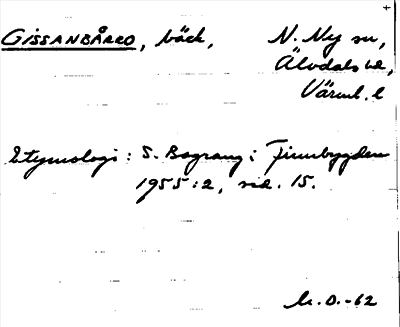 GISSANBÅRRO, bäck, N. Ny sn,
Älvdals hd,
Värml. l
Etymologi: S. Bograng i Finnbygden
1955:2, sid. 15.
M.O.-62